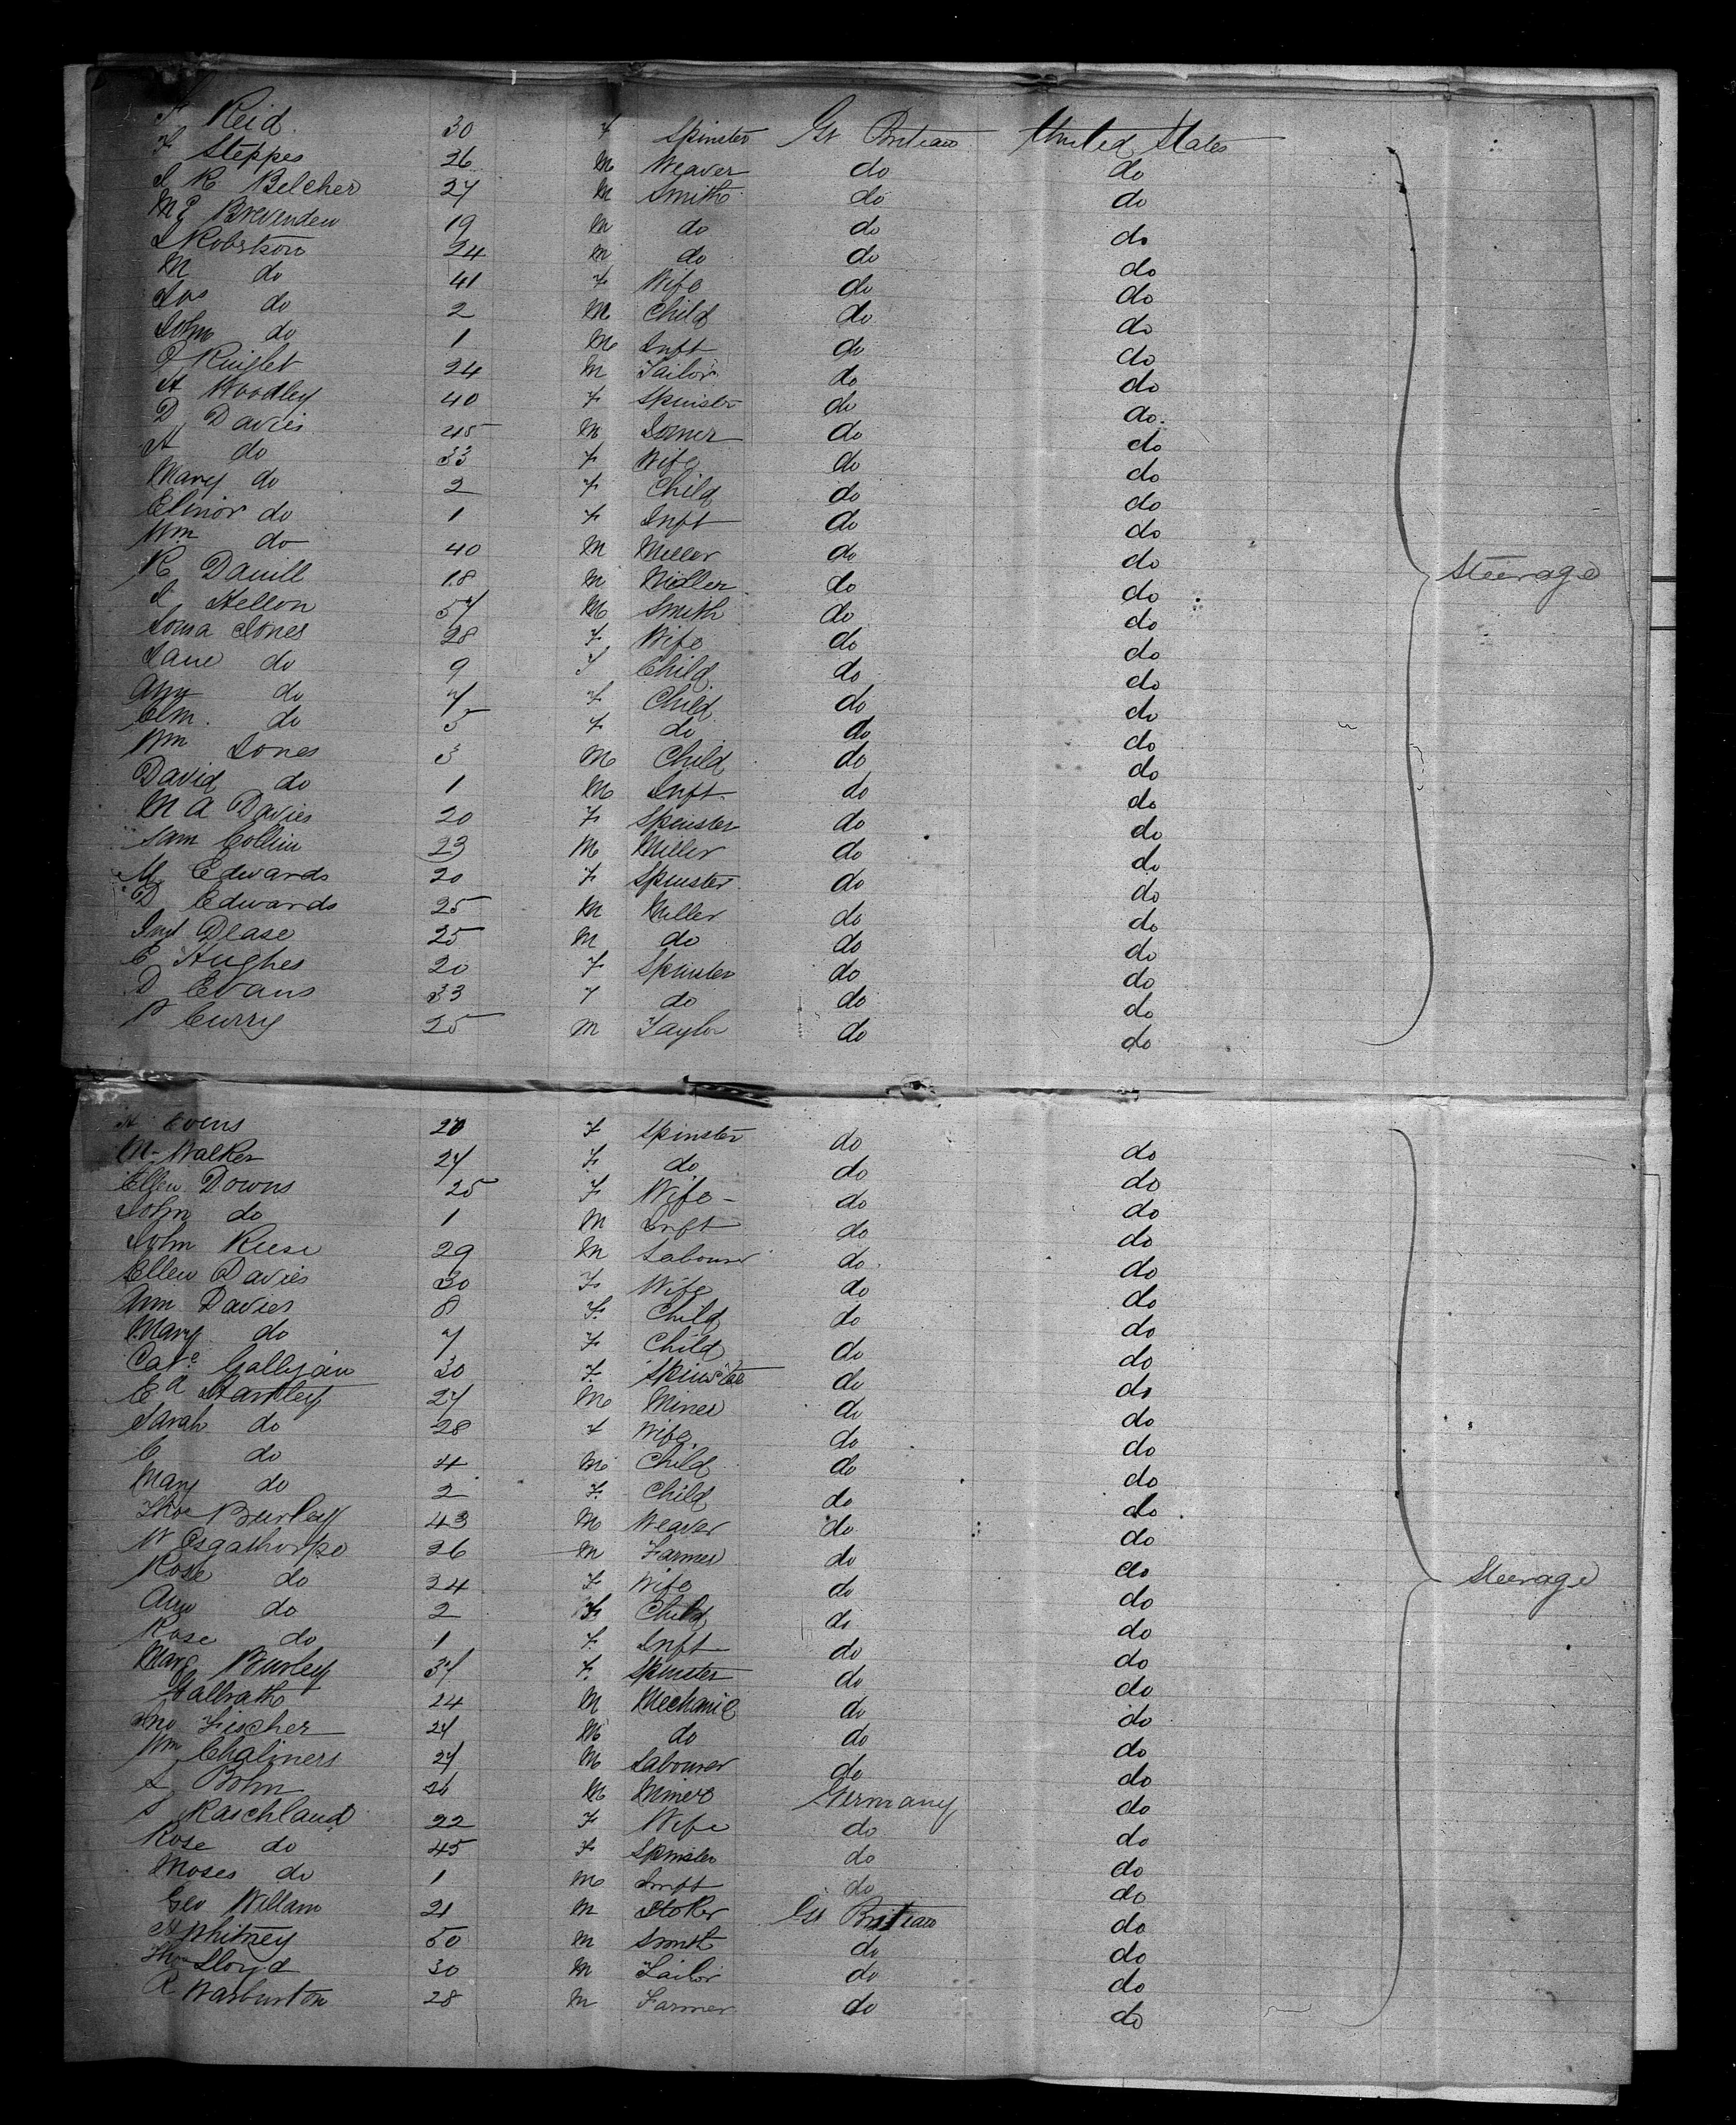 Reid 30 F Spinster Gt Britain United States
F Steppes 26 M Weaver do do
J R Belcher 27 M Smith do do
Brevinden 19 M do do do
Robertson 24 M do do do
M do 41 F Wife do do
Jas do 2 M Child do do
John do 1 M Inft do do
24 M Tailor do do
H Woodley 40 F Spinster do do
D Davies 45 M Joiner do do
A do 33 F Wife do do
Mary do 2 F Child do do
Elinor do 1 F Inft do do
Wm do 40 M Miller do do
R Davill 18 M Miller do do Steerage
Hellon 57 M Smith do do
Jones 28 F Wife do do
Jane do 9 F Child do do
Ann do 7 F Child do do
Elm. do 5 F do do do
Wm Jones 3 M Child do do
David do 1 M Inft do do
M A Davies 20 F Spinster do do
Sam Collin 23 M Miller do do
M Edwards 20 F Spinster do do
D Edwards 25 M Miller do do
Dease 25 M do do do
E Hughes 20 F Spinster do do
D Evans 33 F do do do
P Curry 25 M Taylor do do
A Evens 20 F Spinster do do
M Walker 27 F do do do
Ellen Downs 25 F Wife do do
John do 1 M Inft do do
John Reese 29 M Labourer do do
Ellen Davies 30 F Wife do do
Wm Davies 8 F Child do do
Mary do 7 F Child do do
Cate Galligan 30 F Spinster do do
Ed Hartley 27 M Miner do do
Sarah do 28 F Wife do do
C do 4 M Child do do
Mary do 2 F Child do do
Thos Burley 43 M Weaver do do
W Osgathorpe 26 M Farmer do do
Rose do 24 F Wife do do Steerage
Ann do 2 F Child do do
Rose do 1 F Inft do do
Marg Burley 37 F Spinster do do
Galbraith 24 M Mechanic do do
Jno Fischer 27 M do do do
Wm Chalmers 27 M Labourer do do
Bohn 26 M Miner Germany do
S Raschland 22 F Wife do do
Rose do 45 F Spinster do do
Moses do 1 M Inft do do
Geo Willam 21 M Stoker Gt Britain do
H Whitney 50 M Smith do do
Thos Lloyd 30 M Tailor do do
R Warburton 28 M Farmer do do